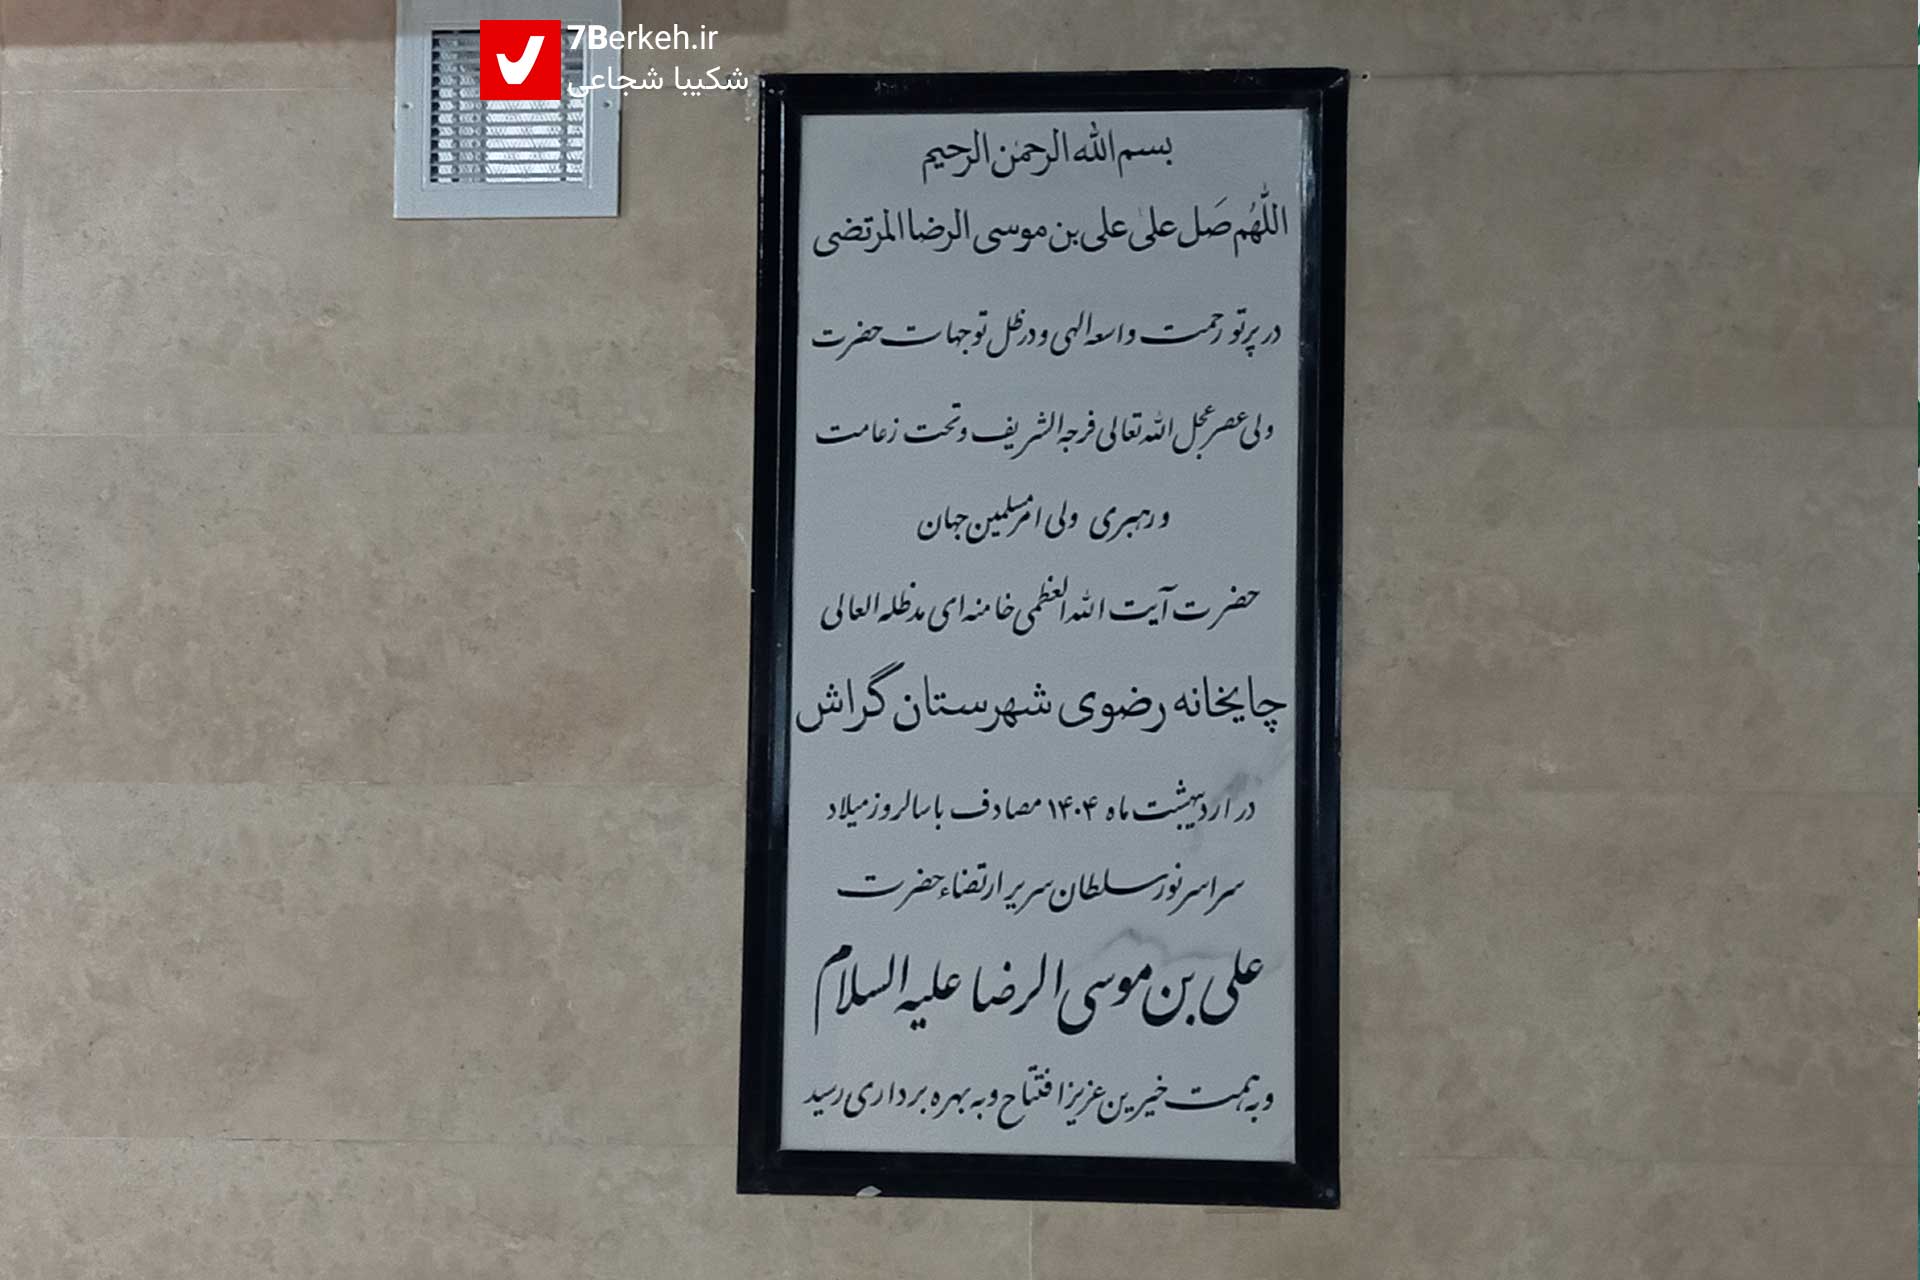 7Berkeh.ir
شکیبا شجاعی
بسم الله الرحمن الرحیم
اللهُم صَل علیٰ علی بن موسی الرضا المرتضی
در پرتو رحمت واسعه الهی و در ظل توجهات حضرت
ولی عصر عجل الله تعالی فرجه الشریف و تحت زعامت
و رهبری ولی امر مسلمین جهان
حضرت آیت الله العظمی خامنه ای مدظله العالی
چایخانه رضوی شهرستان گراش
در اردیبهشت ماه ۱۴۰۴ مصادف با سالروز میلاد
سراسر نور سلطان سریر ارتضاء حضرت
علی بن موسی الرضا علیه السلام
و به همت خیرین عزیز افتتاح و به بهره برداری رسید